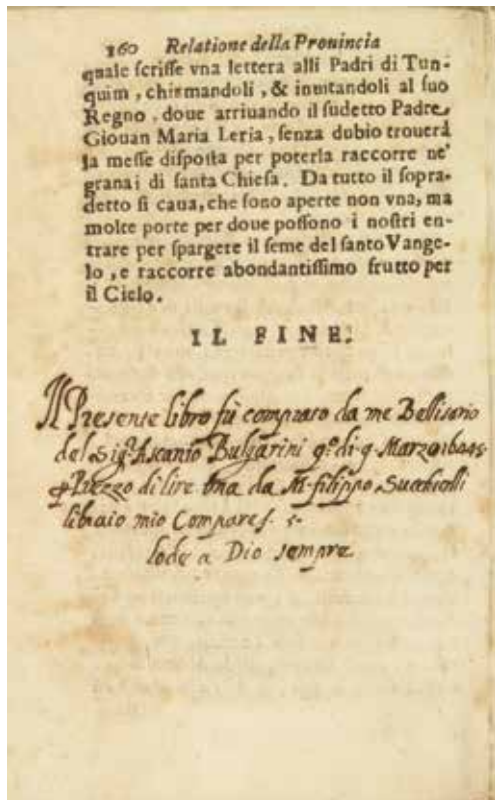 160 Relatione della Prouincia
quale ſcriſſe vna lettera alli Padri di Tun-
quim, chiamandoli, & inuitandoli al ſuo
Regno, doue arriuando il ſudetto Padre
Giouan Maria Leria, ſenza dubio trouerà
la meſſe diſpoſta per poterla raccorre ne'
granai di ſanta Chieſa. Da tutto il ſopra-
detto ſi caua, che ſono aperte non vna, ma
molte porte per doue poſſono i noſtri en-
trare per ſpargere il ſeme del ſanto Vange-
lo, e raccorre abondantiſſimo frutto per
il Cielo.
IL FINE.
Il Presente libro fù comprato da me Bellisario
del Sigr. Ascanio Bulgarini di Marzo
Prezzo di lire una da M. filippo Succhielli
libraio mio Compare
lode a Dio sempre